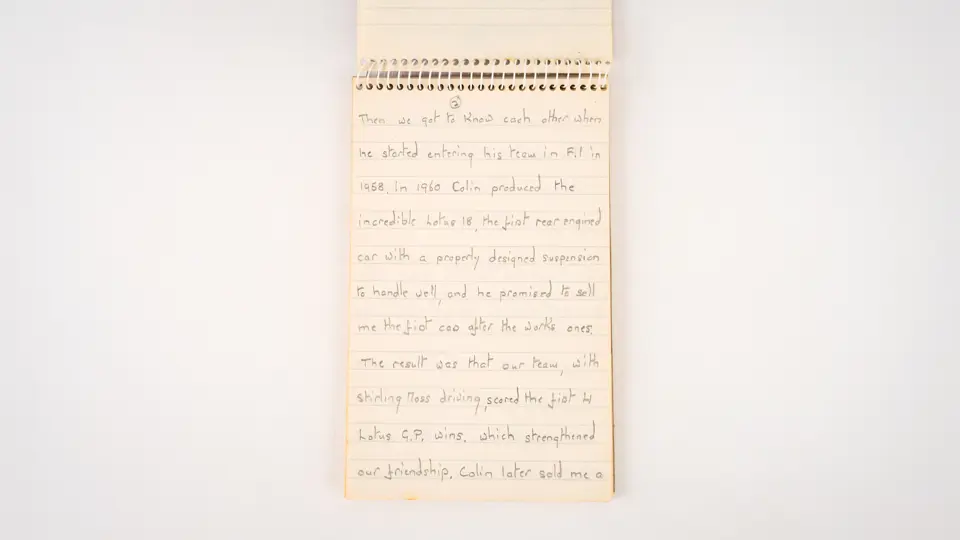 ②
Then we got to know each other when
he started entering his team in F.1 in
1958. In 1960 Colin produced the
incredible Lotus 18, the first rear engined
car with a properly designed suspension
to handle well, and he promised to sell
me the first car after the works ones.
The result was that our team, with
Stirling Moss driving, scored the first 4
Lotus G.P. wins, which strengthened
our friendship. Colin later sold me a